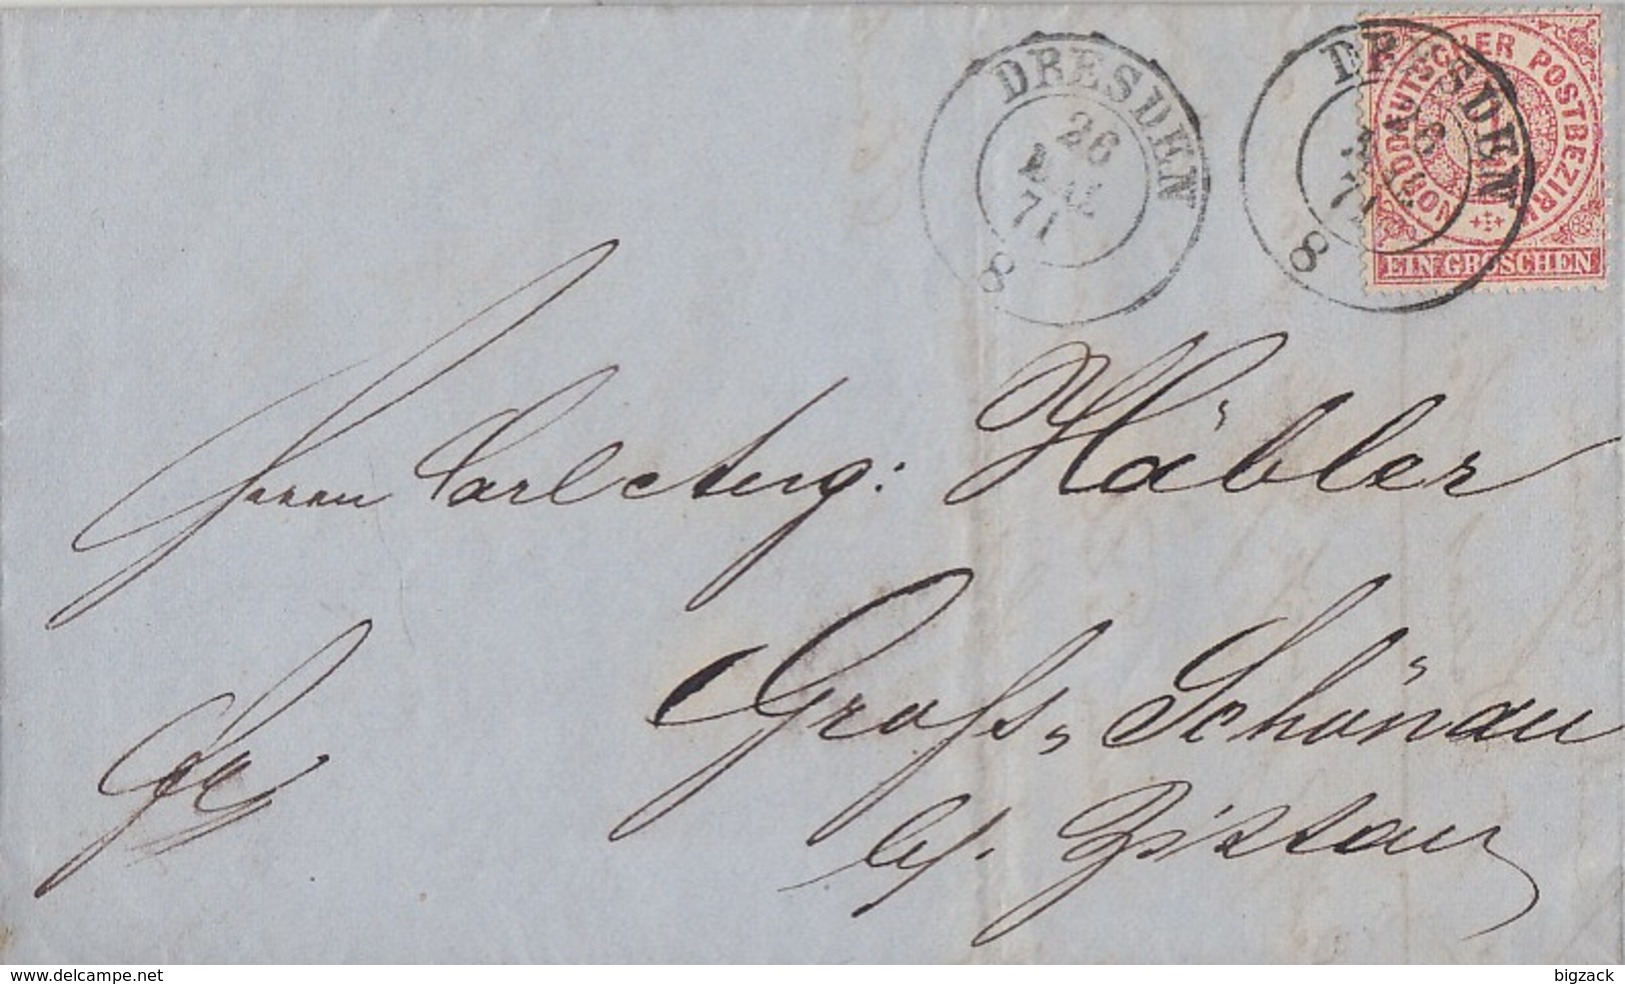 DRESDEN
26
71
8
DRESDEN
26
71
8
NORDDEUTSCHER POSTBEZIRK
1
EIN GROSCHEN
Herrn Carl Aug: Häbler
Gross, Schönau
b/. Zittau
www.delcampe.net
bigzack